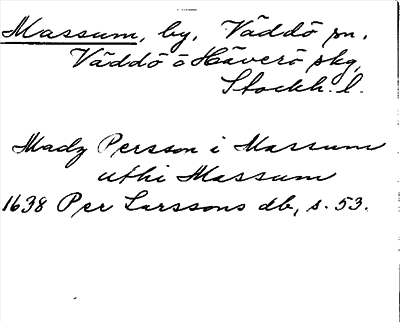 Massum, by, Väddö sn,
Väddö o Häverö skg,
Stockh. l.
Mady Persson i Massum
uthi Massum
1638 Per Larssons db, s. 53.